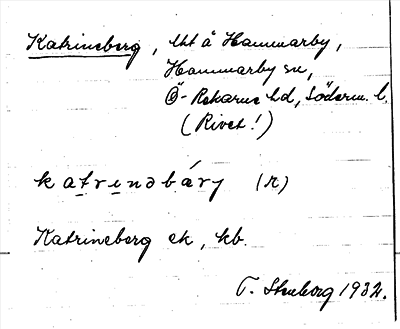 Katrineberg, lht å Hammarby,
Hammarby sn,
Ö-Rekarne hd, Söderm. l.
(Rivet!)
katrinəbárj (R)
Katrineberg ek, kb.
T. 1932.